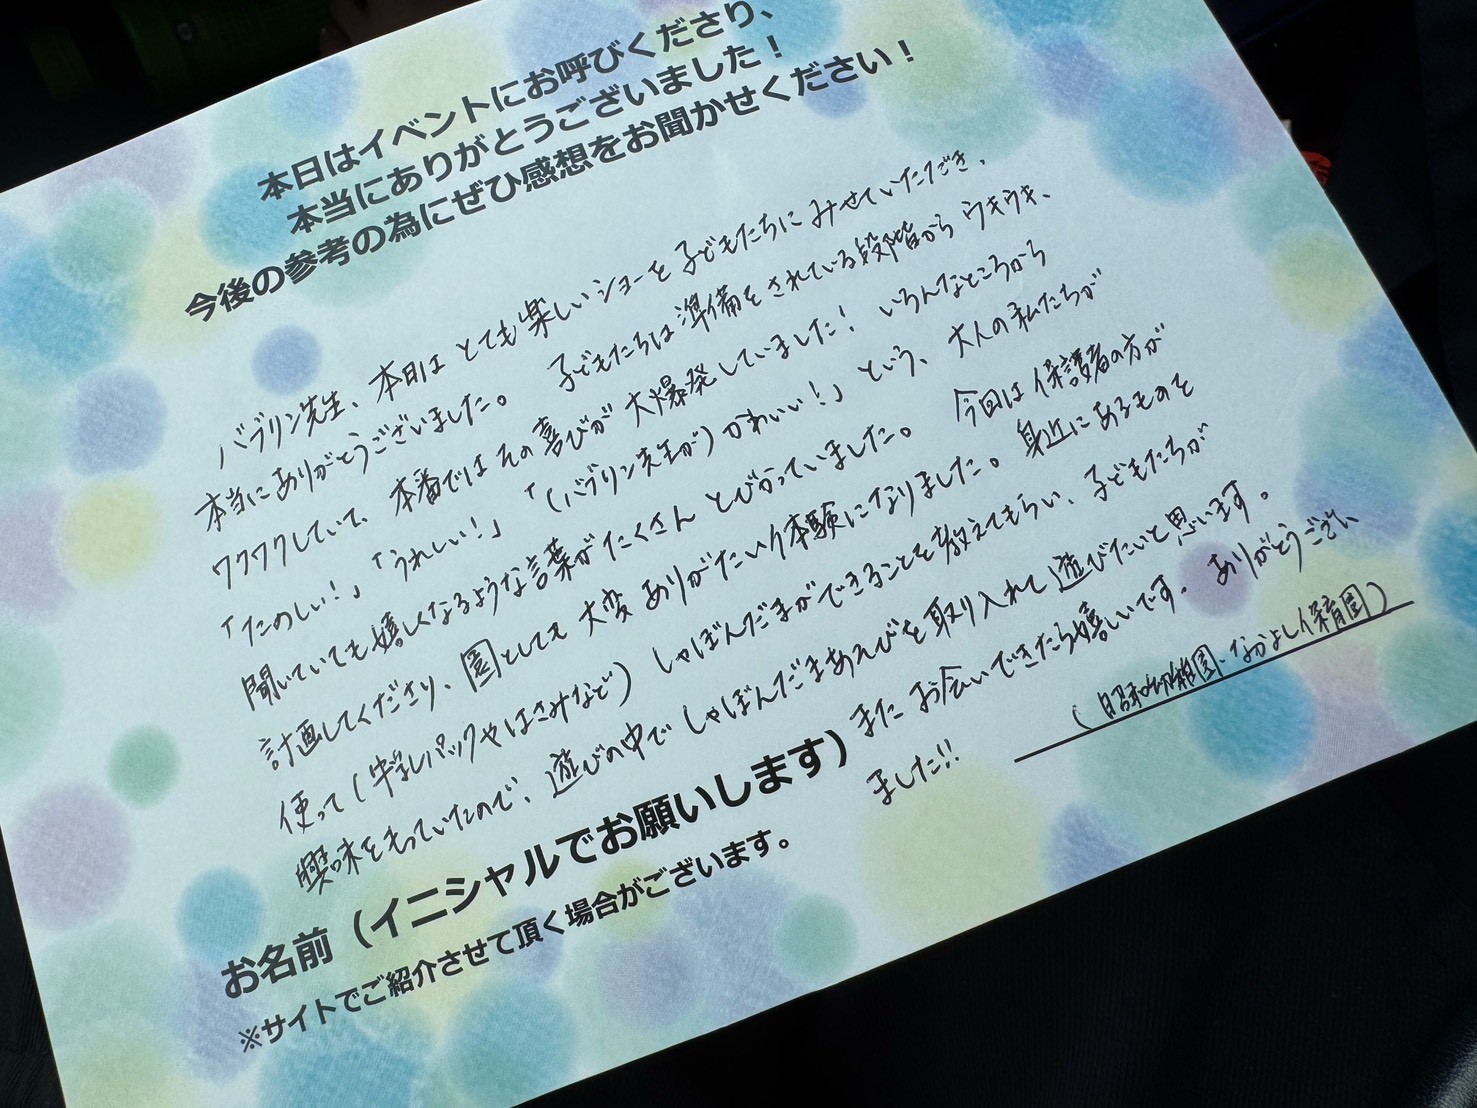 本日はイベントにお呼びくださり、
本当にありがとうございました！
今後の参考の為にぜひ感想をお聞かせください！
バブリン先生、本日は とても楽しいショーを 子どもたちに みせていただき、
本当に ありがとうございました。 子どもたちは 準備をされている段階から ウキウキ、
ワクワクしていて、本番では その喜びが 大爆発していました！ いろんなところから
「たのしい！」「うれしい！」「(バブリン先生が) かわいい！」という、大人の私たちが
聞いていても嬉しくなるような言葉が たくさん とびかっていました。 今回は 保護者の方が
計画してくださり、園としても 大変 ありがたい体験になりました。身近にあるものを
使って (牛乳パックやはさみなど) しゃぼんだまができることを教えてもらい、子どもたちが
興味をもっていたので、遊びの中で しゃぼんだまあそびを取り入れて 遊びたいと思います。
また お会いできたら嬉しいです。ありがとうござい
ました!!
お名前（イニシャルでお願いします）
(昭和幼稚園・なかよし保育園)
※サイトでご紹介させて頂く場合がございます。